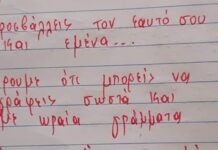 προσβάλλεις τον εαυτό σου
και εμένα...
ότι μπορείς να
σωστά και
με ωραία γράμματα